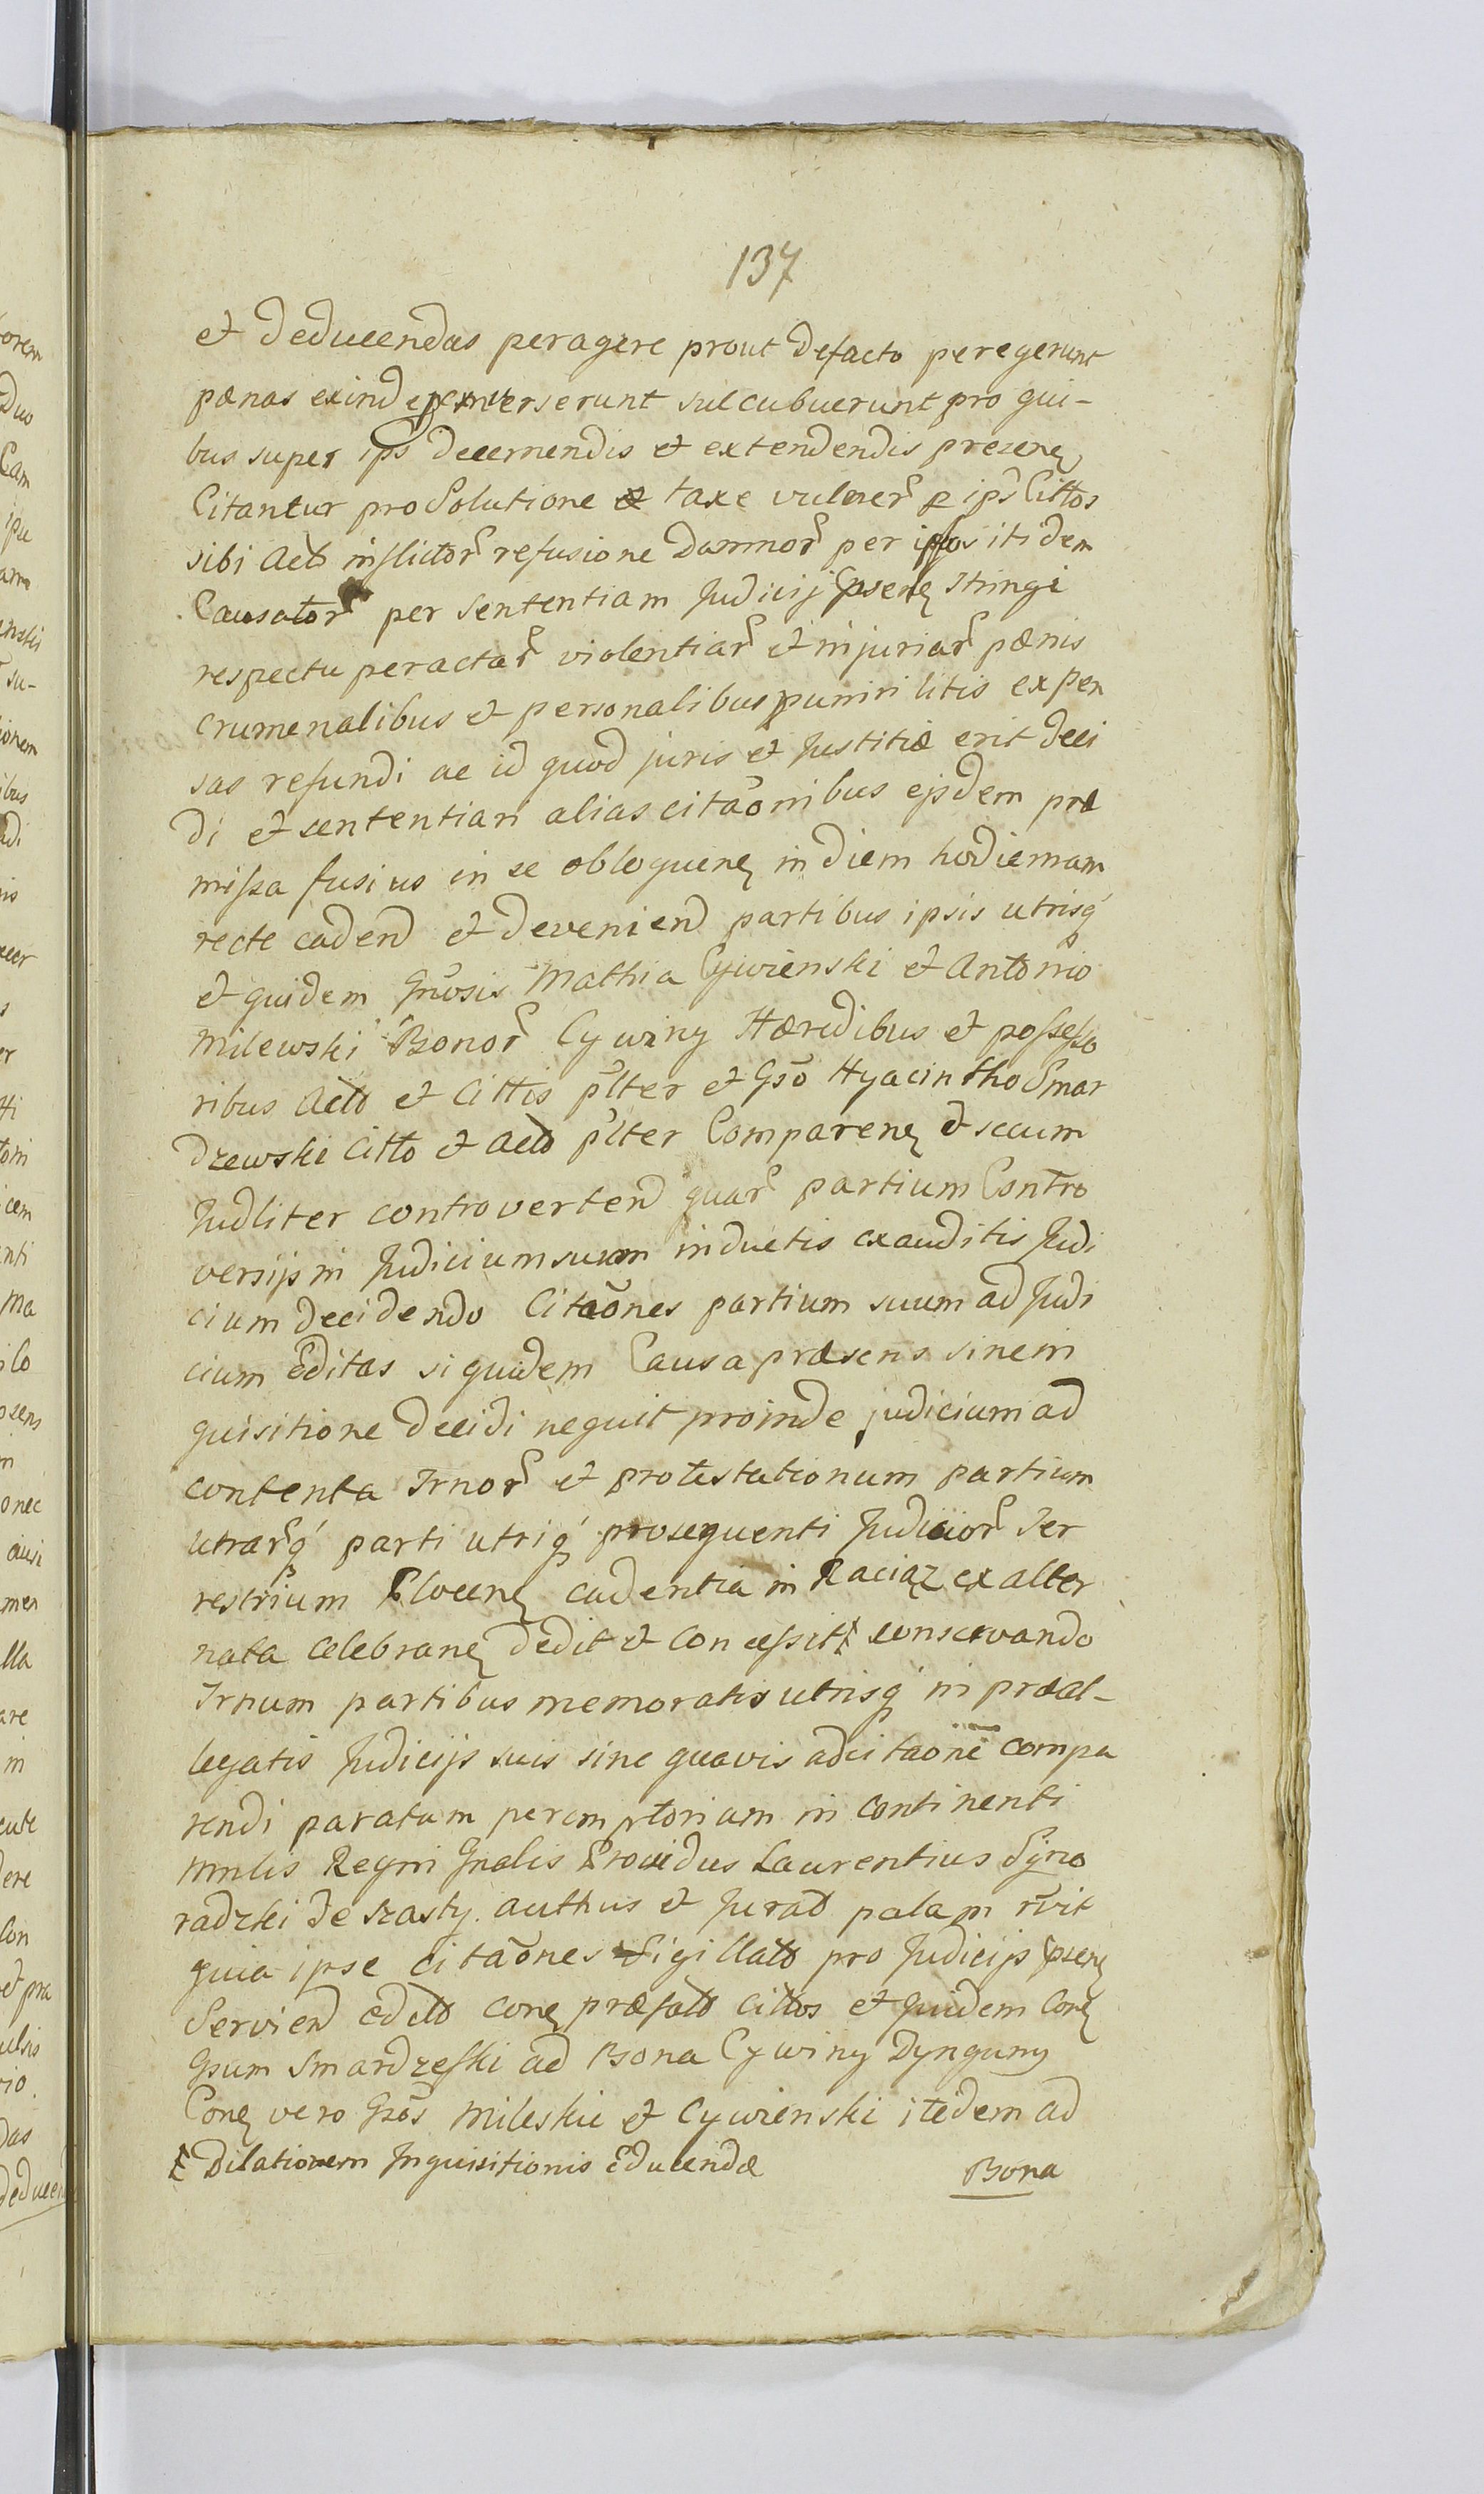 137
et deducendas peragere prout defacto peregerunt
pænas exinde succubuerunt pro qui-
bus super ips decernendis et extendendis presenȩ
Citantur pro Solutione taxe vulner͂ p ips Cittos
sibi Actō inflictor͂ refusione damnor͂ per ipsos itidem
Causator͂ per Sententiam Judicij psenȩ stringi
respectu peractar͂ violentiar͂ et injuriar͂ pænis
crumenalibus et personalibus puniri litis expen
sas refundi ac id quod juris et Justitiæ erit deci
di et sententiari alias citaõnibus ejsdem præ
missa fusius in se obloquenȩ in diem hodiernam
recte cadend et deveniend partibus ipsis utrisq́
et quidem Gnõsis Mathia Cywienski et Antonio
Milewski Bonor͂ Cywiny Hæredibus et possesso
ribus Actō et Cittis p̃lter et Gsõ Hyacintho Smar
dzewski Citto et Actō p̃lter Comparenȩ et secum
Judliter controvertend quar͂ partium Contro
versijs in Judicium suum inductis exauditis Judi
cium decidendo Citaõnes partium suum ad Judi
cium Editas siquidem Causa præsens sine in
quisitione decidi nequit proinde judicium ad
contenta Trnor͂ et protestationum partium
utrar͂q́ parti utriq́ prosequenti Judicior͂ Ter
restrium Plocenȩ cadentia in Raciąz ex alter
nata celebranȩ dedit et Concessit conservando
Trnum partibus memoratis utrisq́ in præal-
legatis Judicijs suis sine quavis adcitaõne compa
rendi paratum peremptorium in continenti
Mnlis Regni Gnalis Providus Laurentius Syno
radzki de Szasty. authus et Jurat palam rt̃vit
quia ipse citaõnes Sigillatō pro Judicijs psenȩ
Serviend editō conȩ præfatō cittos et quidem Conȩ
Gsum Smardzeski ad Bona Cywiny Dynguny
Conȩ vero Gsõs Mileskie et Cywienski itidem ad
Dilationem Inquisitionis Educendæ
Bona